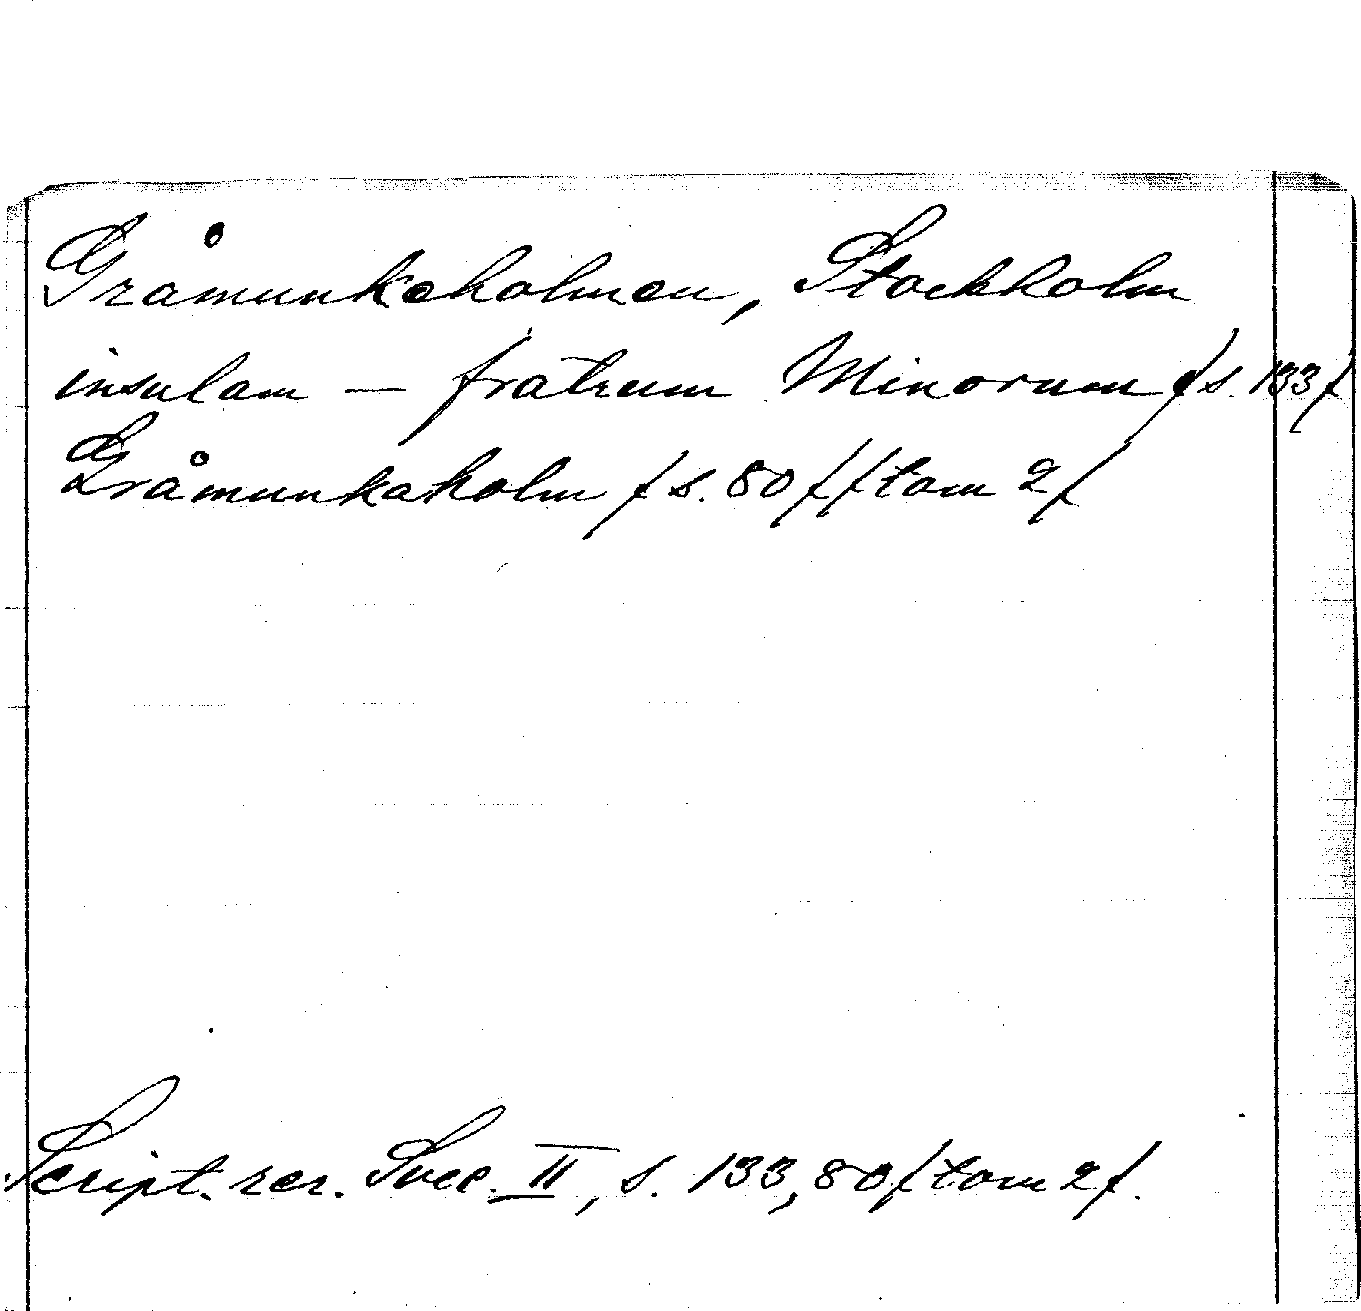 Gråmunkeholmen, Stockholm
insulam — fratrum Minorum /s. 133/
Gråmunkaholm /s. 80/ /tom 2/
Script. rer. Svec. II, s. 133, 80 /tom 2/.